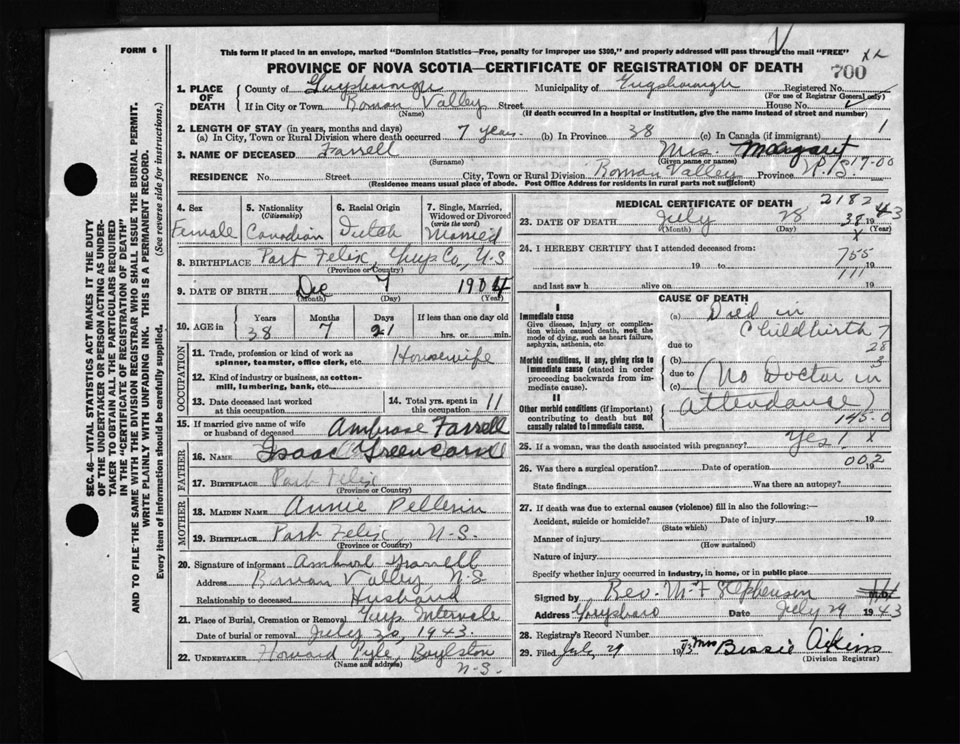 FORM 6
This form if placed in an envelope, marked "Dominion Statistics—Free, penalty for improper use $300," and properly addressed will pass through the mail "FREE"
PROVINCE OF NOVA SCOTIA—CERTIFICATE OF REGISTRATION OF DEATH
700
SEC. 46—VITAL STATISTICS ACT MAKES IT THE DUTY OF THE UNDERTAKER OR PERSON ACTING AS UNDERTAKER TO OBTAIN ALL THE PARTICULARS REQUIRED IN THE "CERTIFICATE OF REGISTRATION OF DEATH" AND TO FILE THE SAME WITH THE DIVISION REGISTRAR WHO SHALL ISSUE THE BURIAL PERMIT.
WRITE PLAINLY WITH UNFADING INK. THIS IS A PERMANENT RECORD.
Every item of Information should be carefully supplied. (See reverse side for instructions.)
1. PLACE OF DEATH County of Guysborough Municipality of Guysborough Registered No.
(For use of Registrar General only)
If in City or Town Roman Valley Street House No.
(Name) (If death occurred in a hospital or institution, give the name instead of street and number)
2. LENGTH OF STAY (in years, months and days)
(a) In City, Town or Rural Division where death occurred 7 years (b) In Province 38 (c) In Canada (if immigrant) 1
3. NAME OF DECEASED Farrell Mrs. Margaret
(Surname) (Given name or names)
RESIDENCE No. Street City, Town or Rural Division Roman Valley Province N.S. 17-00
(Residence means usual place of abode. Post Office Address for residents in rural parts not sufficient)
4. Sex Female
5. Nationality (Citizenship) Canadian
6. Racial Origin Dutch
7. Single, Married, Widowed or Divorced (write the word) Married
8. BIRTHPLACE Port Felix, Guys Co., N.S
(Province or Country)
9. DATE OF BIRTH Dec 7 1904
(Month) (Day) (Year)
10. AGE in Years 38 Months 7 Days 21 If less than one day old hrs. or min.
OCCUPATION
11. Trade, profession or kind of work as spinner, teamster, office clerk, etc. Housewife
12. Kind of industry or business, as cotton-mill, lumbering, bank, etc.
13. Date deceased last worked at this occupation
14. Total yrs. spent in this occupation 11
15. If married give name of wife or husband of deceased Ambrose Farrell
FATHER
16. NAME Isaac Greencorn
17. BIRTHPLACE Port Felix
(Province or Country)
MOTHER
18. MAIDEN NAME Annie Pellerin
19. BIRTHPLACE Port Felix, N.S.
(Province or Country)
20. Signature of informant Farrell
Address Roman Valley N.S
Relationship to deceased Husband
21. Place of Burial, Cremation or Removal Guys Intervale
Date of burial or removal July 30, 1943.
22. UNDERTAKER Howard Pyle, Boylston
(Name and address) N-S.
MEDICAL CERTIFICATE OF DEATH
2182
23. DATE OF DEATH July 28 38 1943
(Month) (Day) (Year)
x
24. I HEREBY CERTIFY that I attended deceased from:
755
19 to 19
111
and last saw h alive on 19
CAUSE OF DEATH
I
Immediate cause
Give disease, injury or complication which caused death, not the mode of dying, such as heart failure, asphyxia, asthenia, etc.
Morbid conditions, if any, giving rise to immediate cause (stated in order proceeding backwards from immediate cause).
II
Other morbid conditions (if important) contributing to death but not causally related to immediate cause.
(a) Died in
Childbirth 7
due to 28
(b) 3
due to (No Doctor in
(c)
attendance)
145-0
25. If a woman, was the death associated with pregnancy? Yes 1 x
002
26. Was there a surgical operation? Date of operation 19
State findings Was there an autopsy?
27. If death was due to external causes (violence) fill in also the following:—
Accident, suicide or homicide? Date of injury 19
(State which)
Manner of injury
(How sustained)
Nature of injury
Specify whether injury occurred in industry, in home, or in public place
Signed by Rev. M. F Stephenson
Address Guysboro Date July 29 1943
28. Registrar's Record Number
29. Filed July 29 1943 Mrs Bessie Aikins
(Division Registrar)